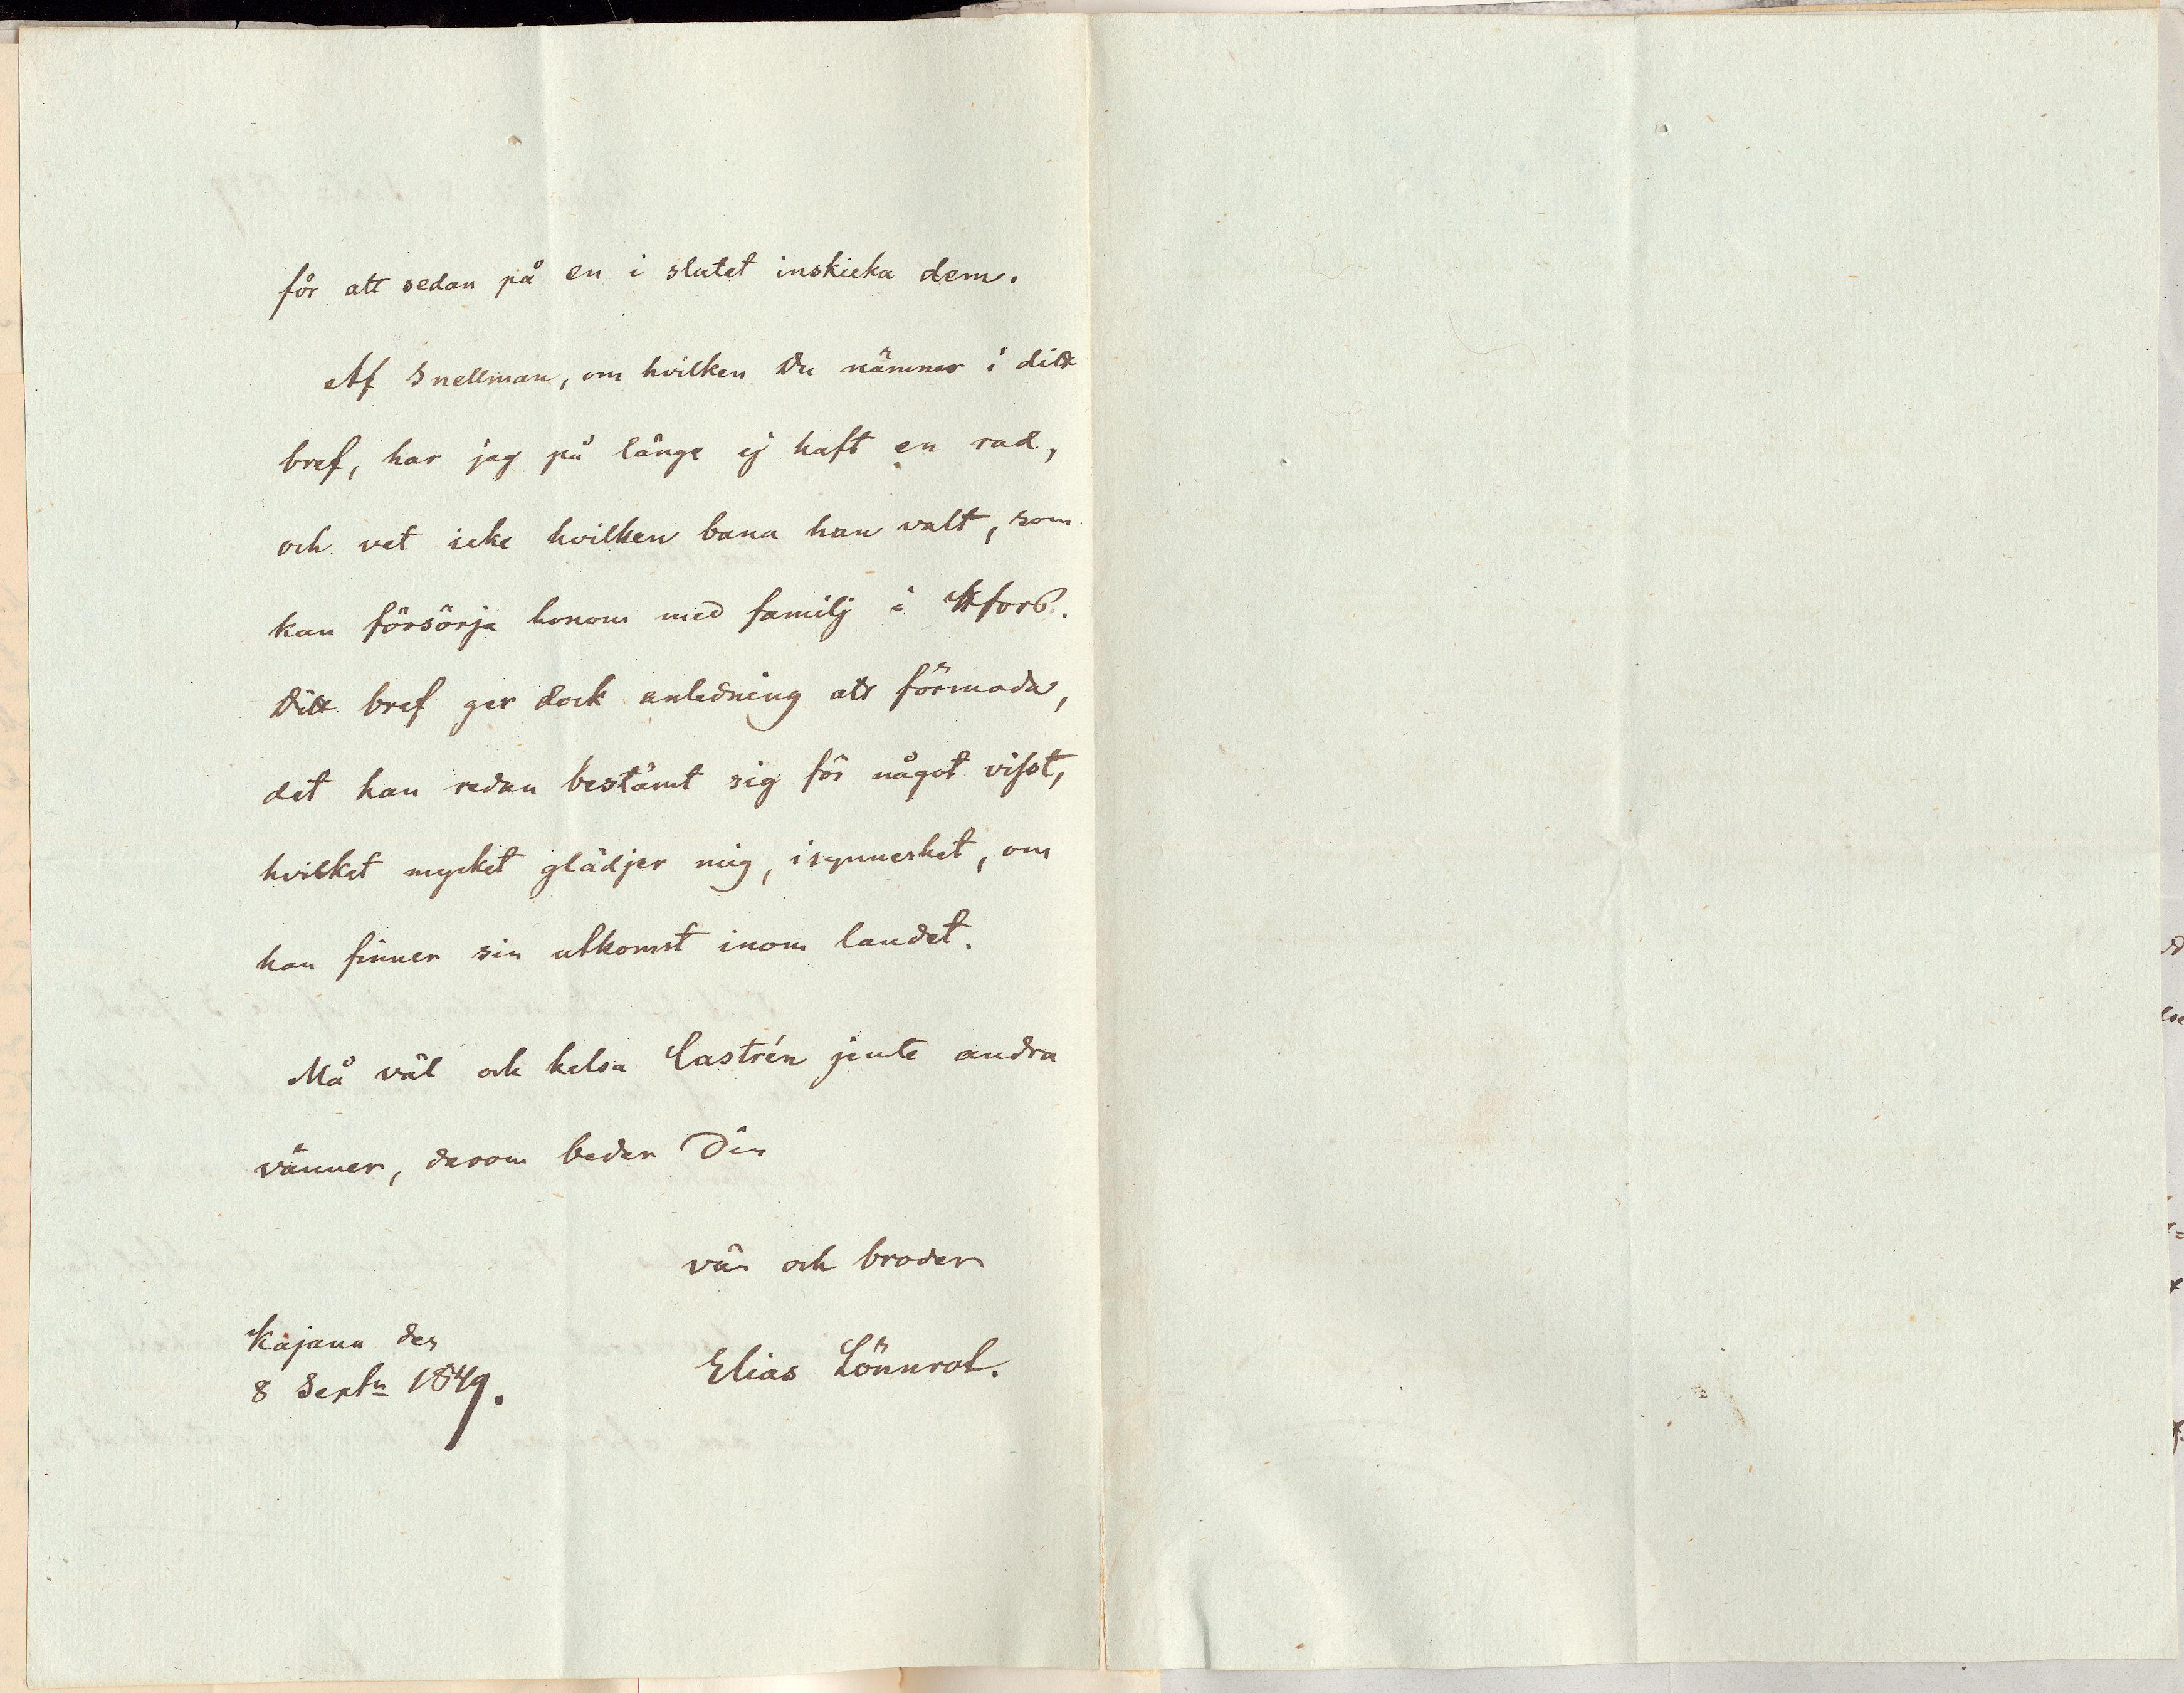 för att sedan på en i slutet inskicka dem.
Af Snellman, om hvilken Du nämner i ditt
bref, har jag på länge ej haft en rad,
och vet icke hvilken bana han valt, som
kan försörja honom med familj i Hfors.
Ditt bref ger dock anledning att förmoda,
det han redan bestämt sig för något visst,
hvilket mycket glädjer mig, isynnerhet, om
han finner sin utkomst inom landet.
Må väl och helsa Castrén jemte andra
vänner, derom beder Din
vän och broder
Elias Lönnrot.
Kajana den
8 Septr 1849.